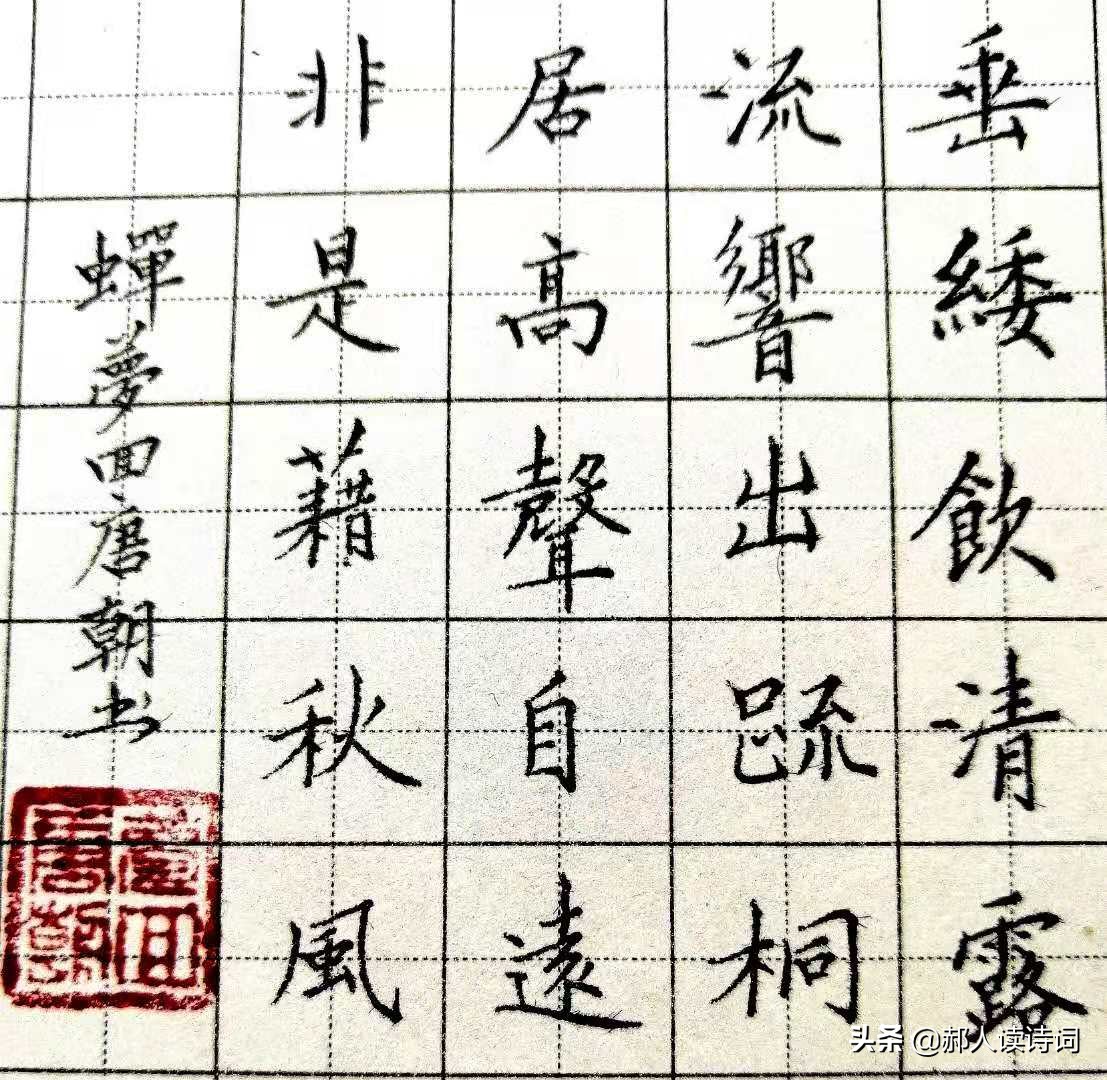 垂緌飲清露
流響出疏桐
居高聲自遠
非是藉秋風
蟬夢回唐朝书
夢回唐朝
头条 @郝人读诗词